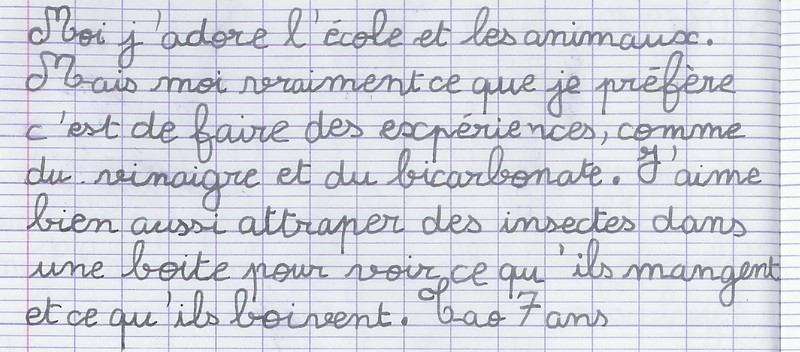 Moi j'adore l'école et les animaux.
Mais moi vraiment ce que je préfère
c'est de faire des expériences, comme
du vinaigre et du bicarbonate. J'aime
bien aussi attraper des insectes dans
une boite pour voir ce qu'ils mangent
et ce qu'ils boivent. Tao 7 ans